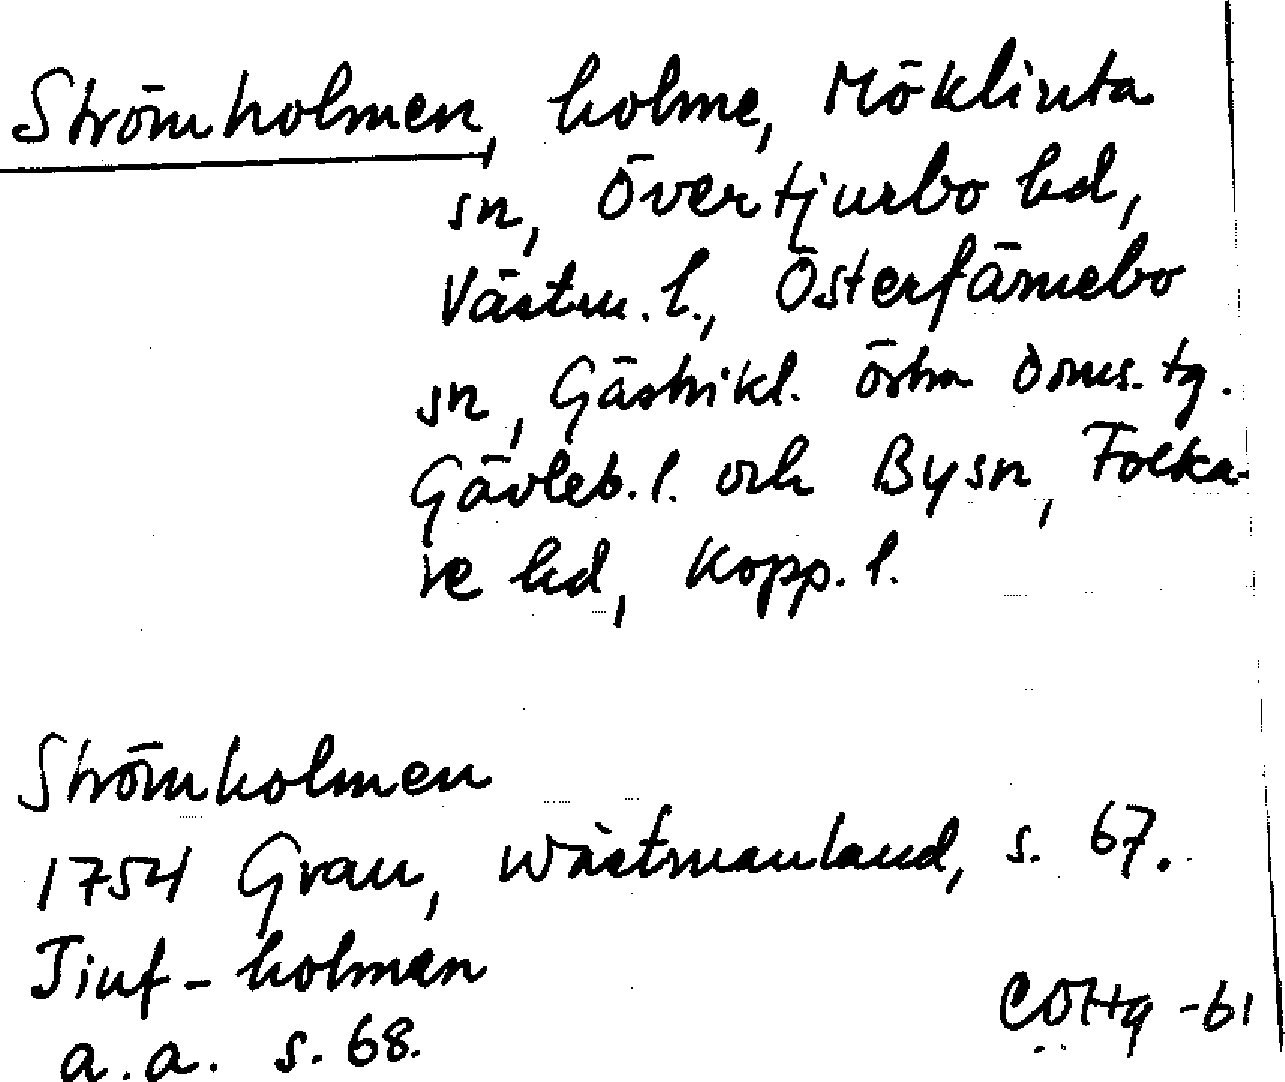 Strömholmen, holme, Möklinta
sn, Övertjurbo hd,
Västm. l., Österfärnebo
sn, Gästrikl. östra doms. tg.
Gävleb. l. och By sn, Folka-
re hd, Kopp. l.
Strömholmen
1754 Grau, Wästmanland, s. 67.
Tiuf-holmen
a.a. s. 68.
-61